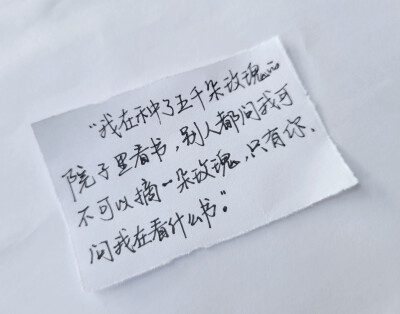 “我在种了五千朵玫瑰的
院子里看书，别人都问我可
不可以摘一朵玫瑰，只有你，
问我在看什么书。”